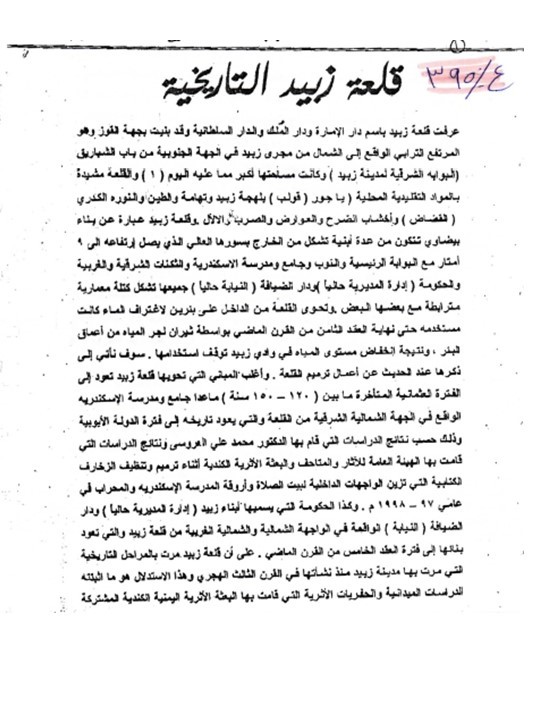 (١)
٣٩٥/٤
قلعة زبيد التاريخية
عرفت قلعة زبيد باسم دار الإمارة ودار المُلك والدار السلطانية وقد بنيت بجهة القوز وهو
المرتفع الترابي الواقع إلى الشمال من مجرى زبيد في الجهة الجنوبية من باب الشباريق
(البوابه الشرقية لمدينة زبيد ) وكانت مساحتها أكبر مما عليه اليوم ( ١ ) والقلعة مشيدة
بالمواد التقليدية المحلية ( يا جور ( قوالب ) بلهجة زبيد وتهامة والطين والنوره الكدري
( القضاض ) وأخشاب الضرح والعوارض والصرب والاثل .وقلعة زبيد عبارة عن بناء
بيضاوي تتكون من عدة أبنية تشكل من الخارج بسورها العالي الذي يصل إرتفاعه الى ٩
أمتار مع البوابة الرئيسية والنوب وجامع ومدرسة الاسكندرية والثكنات الشرقية والغربية
والحكومة ( إدارة المديرية حالياً )ودار الضيافة ( النيابة حالياً ) جميعها تشكل كتلة معمارية
مترابطة مع بعضها البعض .وتحوى القلعة من الداخل على بئرين لاغتراف الماء كانت
مستخدمه حتى نهاية العقد الثامن من القرن الماضي بواسطة ثيران لجر المياه من أعماق
البئر ، ونتيجة إنخفاض مستوى المياه في وادي زبيد توقف استخدامها . سوف نأتي إلى
ذكرها عند الحديث عن أعمال ترميم القلعة . وأغلب المباني التي تحويها قلعة زبيد تعود إلى
الفترة العثمانية المتأخرة ما بين ( ١٢٠ – ١٥٠ سنة ) ماعدا جامع ومدرسة الإسكندريه
الواقع في الجهة الشمالية الشرقية من القلعة والتي يعود تاريخه إلى فترة الدولة الأيوبية
وذلك حسب نتائج الدراسات التي قام بها الدكتور محمد علي العروسي ونتائج الدراسات التي
قامت بها الهيئة العامة للآثار والمتاحف والبعثة الأثرية الكندية أثناء ترميم وتنظيف الزخارف
الكتابية التي تزين الواجهات الداخلية لبيت الصلاة وأروقة المدرسة الإسكندريه والمحراب في
عامي ٩٧ – ١٩٩٨ م . وكذا الحكومة التي يسميها أبناء زبيد ( إدارة المديرية حالياً ) ودار
الضيافة ( النيابة ) الواقعة في الواجهة الشمالية والشمالية الغربية من قلعة زبيد والتي تعود
بنائها إلى فترة العقد الخامس من القرن الماضي . على أن قلعة زبيد مرت بالمراحل التاريخية
التي مرت بها مدينة زبيد منذ نشأتها في القرن الثالث الهجري وهذا الاستدلال هو ما اثبتته
الدراسات الميدانية والحفريات الأثرية التي قامت بها البعثة الأثرية اليمنية الكندية المشتركة